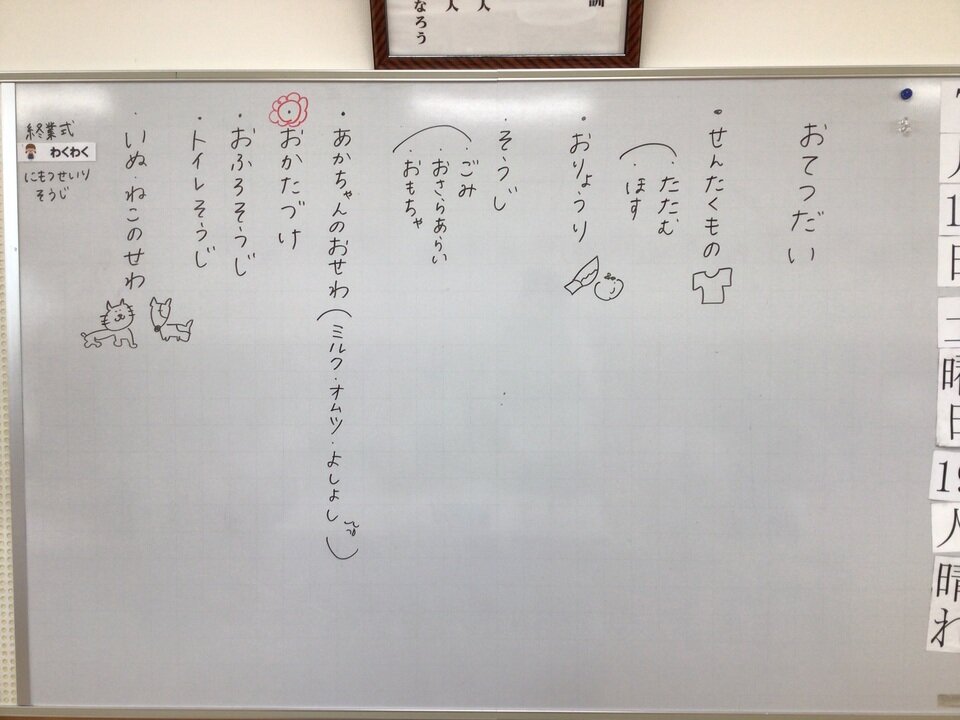 訓
人
人
なろう
おてつだい
・せんたくもの
・たたむ
・ほす
・おりょうり
・そうじ
・ごみ
・おさらあらい
・おもちゃ
・あかちゃんのおせわ(ミルク・オムツ・よしよし)
・おかたづけ
・おふろそうじ
・トイレそうじ
・いぬ・ねこのせわ
終業式
わくわく
にもつせいり
そうじ
月
1
日
土
曜
日
19
人
晴
れ